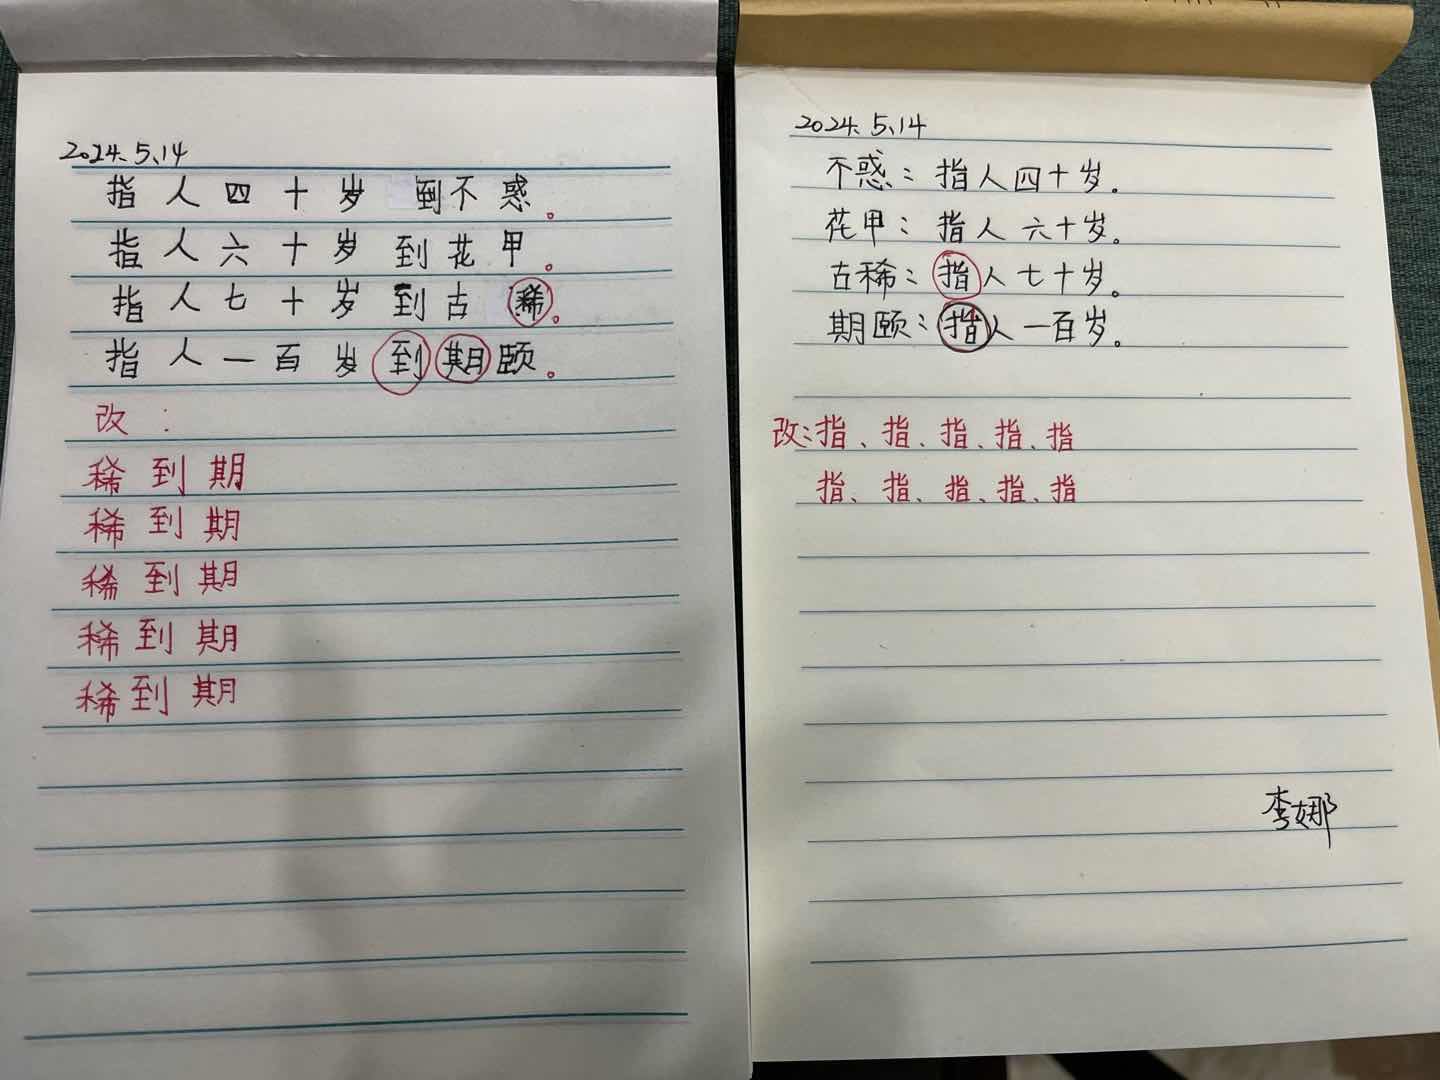 2024.5.14
指人四十岁 到不惑。
指人六十岁 到花甲。
指人七十岁 到古稀。
指人一百岁到期颐。
改:
稀到期
稀到期
稀到期
稀到期
稀到期
2024.5.14
不惑:指人四十岁。
花甲:指人六十岁。
古稀:指人七十岁。
期颐:指人一百岁。
改:指、指、指、指、指
指、指、指、指、指
李娜